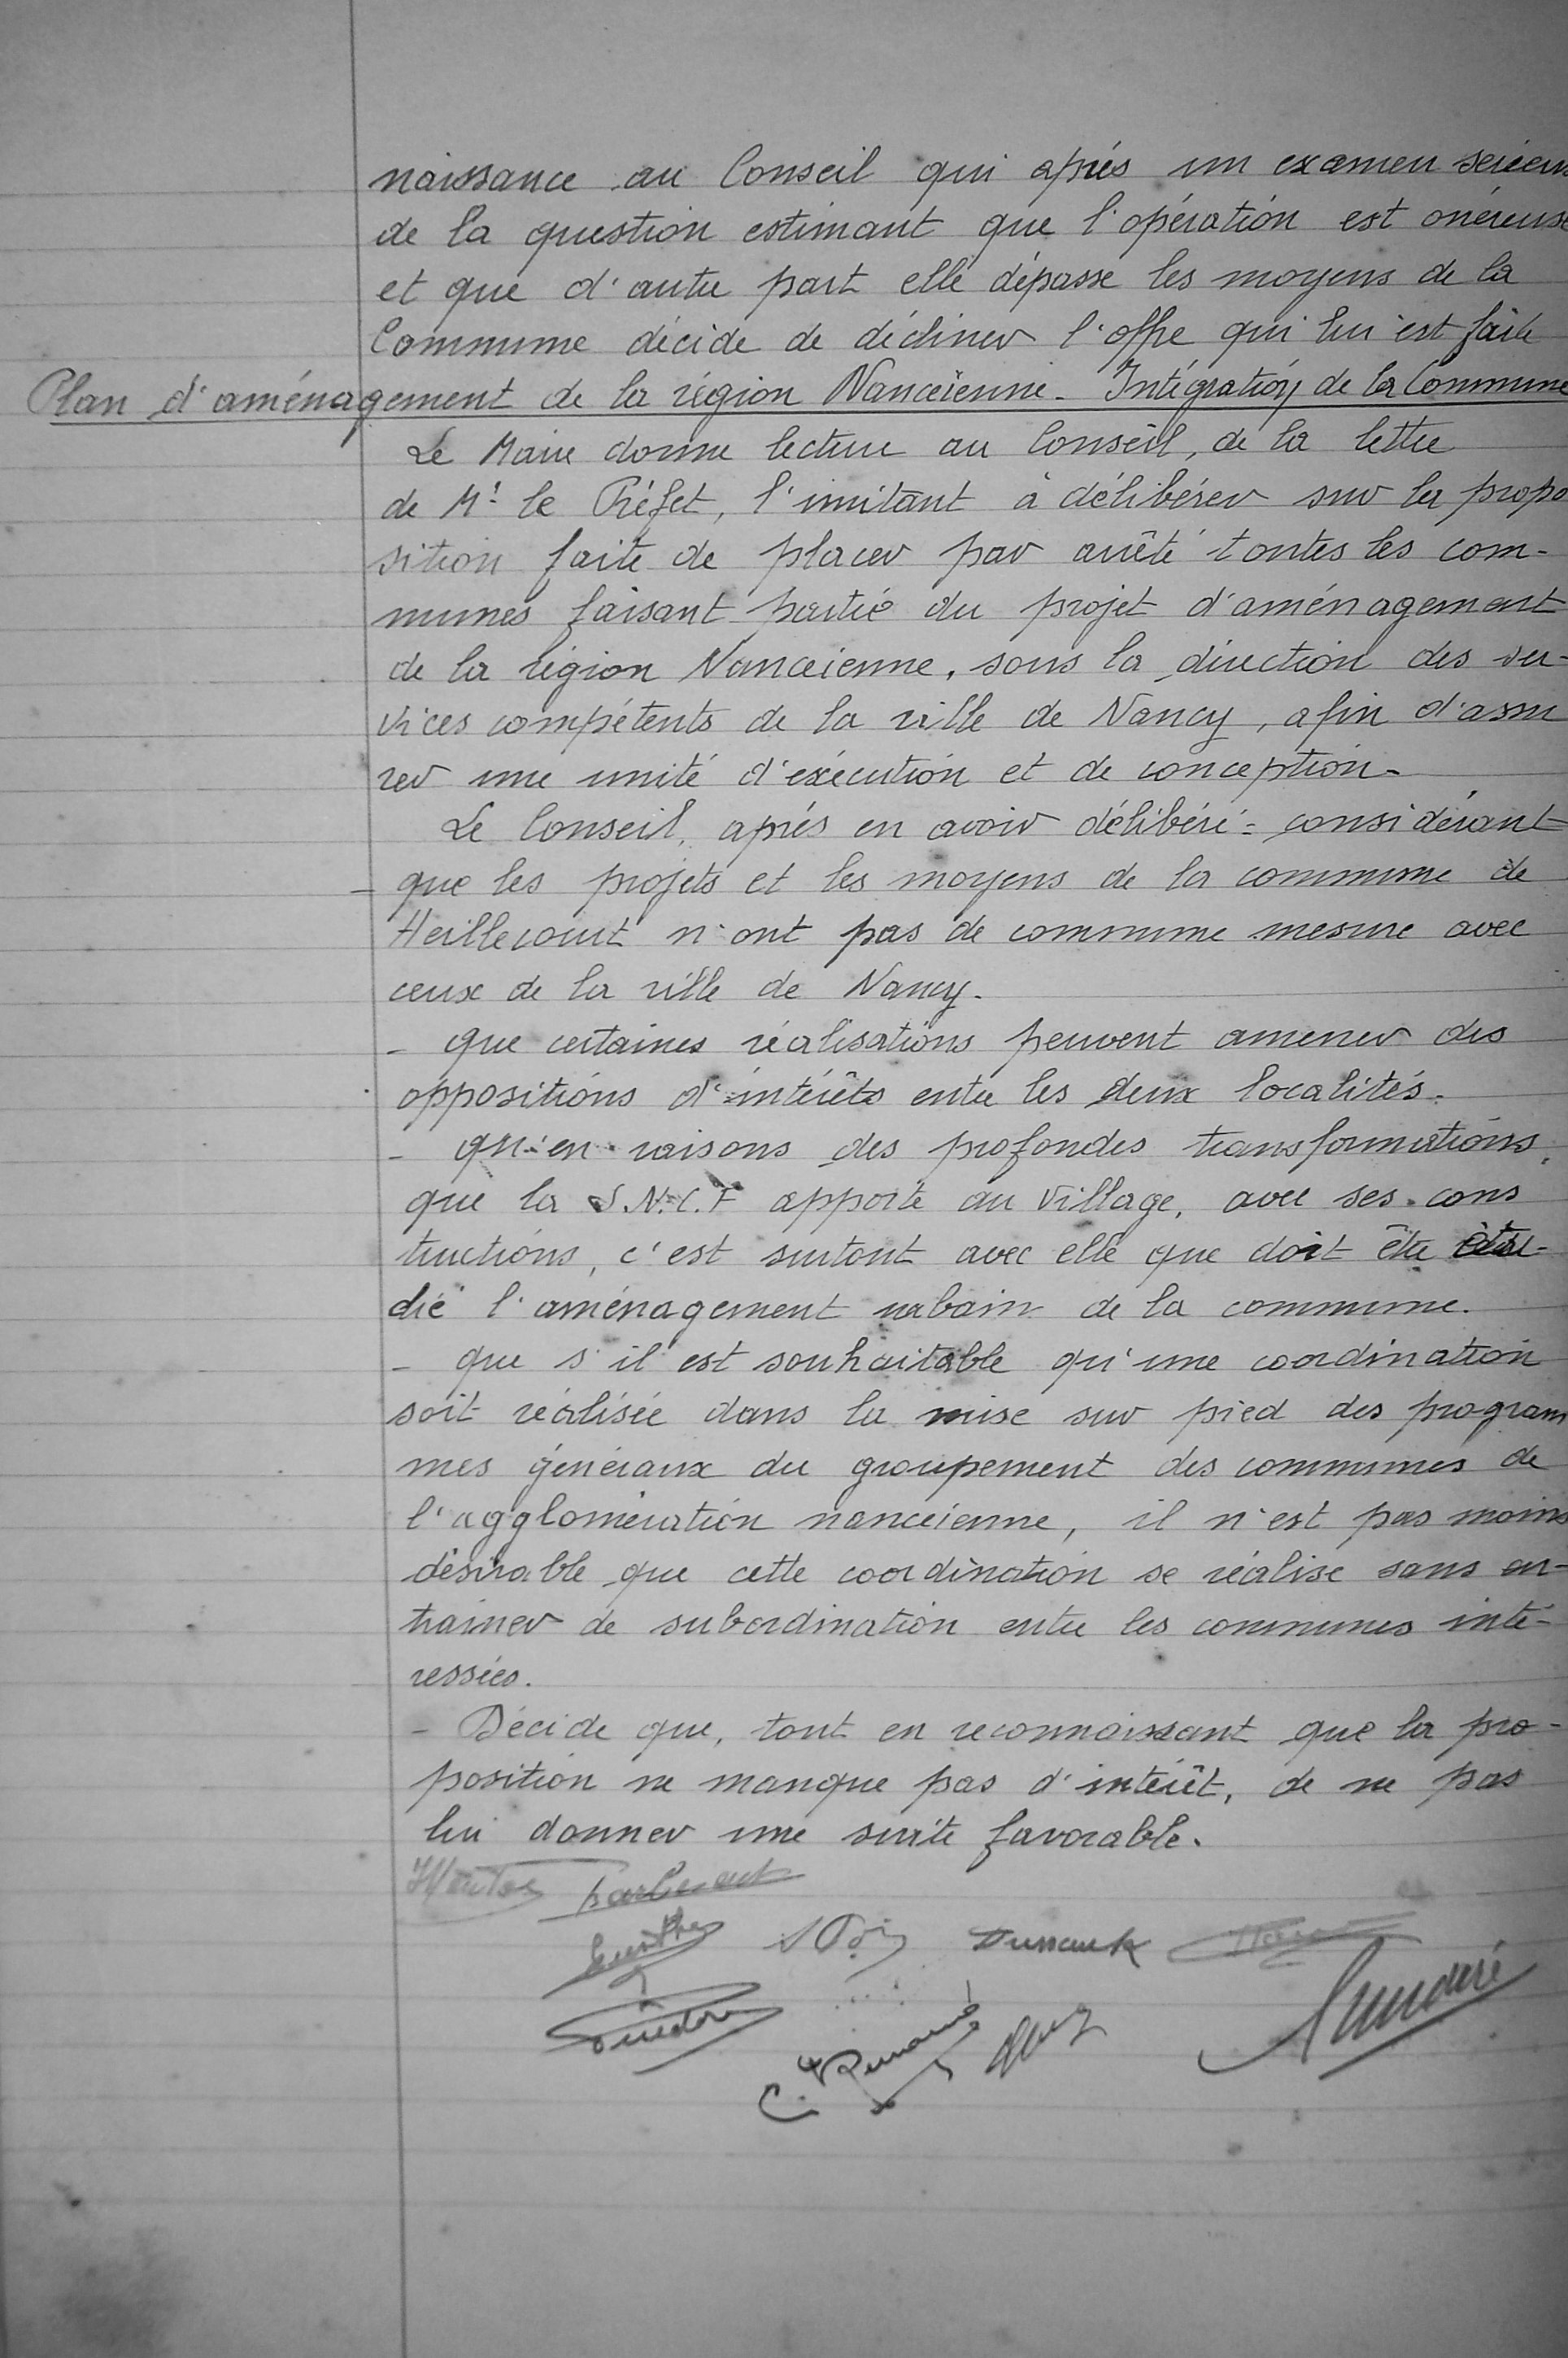 naissance au Conseil qui après un examen sérieux
de la question estimant que l'opération est onéreuse
et que d'autre part elle dépasse les moyens de la
Commune décide de décliner l'offre qui lui est faite
Plan d'aménagement de la région Nancéienne - Intégration de la Commune
Le Maire donne lecture au Conseil, de la lettre
de Mr le Préfet, l'invitant à délibérer sur la propo
sition faite de placer par arrêté toutes les com-
munes faisant partie du projet d'aménagement
de la région Nancéienne, sous la direction des ser-
vices compétents de la ville de Nancy, afin d'assu
rer une unité d'exécution et de conception.
Le Conseil, après en avoir délibéré = considérant =
- que les projets et les moyens de la commune de
Heillecourt n'ont pas de commune mesure avec
ceux de la ville de Nancy.
- que certaines réalisations peuvent amener des
oppositions d'intérêts entre les deux localités.
- qu'en raisons des profondes transformations,
que la S.N.C.F apporte au village, avec ses cons
tructions, c'est surtout avec elle que doit être étu-
dié l'aménagement urbain de la commune.
- que s'il est souhaitable qu'une coordination
soit réalisée dans la mise sur pied des program
mes généraux du groupement des communes de
l'agglomération nancéienne, il n'est pas moins
désirable que cette coordination se réalise sans en-
trainer de subordination entre les communes inté-
ressées.
- Décide que, tout en reconnaissant que la pro-
position ne manque pas d'intérêt, de ne pas
lui donner une suite favorable.